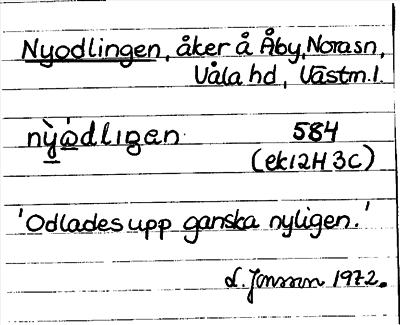 Nyodlingen, åker å Åby, Norasn,
Våla hd, Västm.l.
nỳódlıgen 584
(ek12H 3C)
'Odlades upp ganska nyligen.'
L. Jonsson 1972.